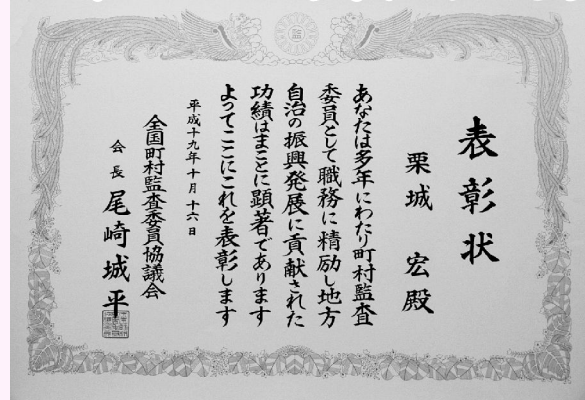 監
表彰状
栗城 宏殿
あなたは多年にわたり町村監査
委員として職務に精励し地方
自治の振興発展に貢献された
功績はまことに顕著であります
よってここにこれを表彰します
平成十九年十月十六日
全国町村監査委員協議会
会長 尾崎城平